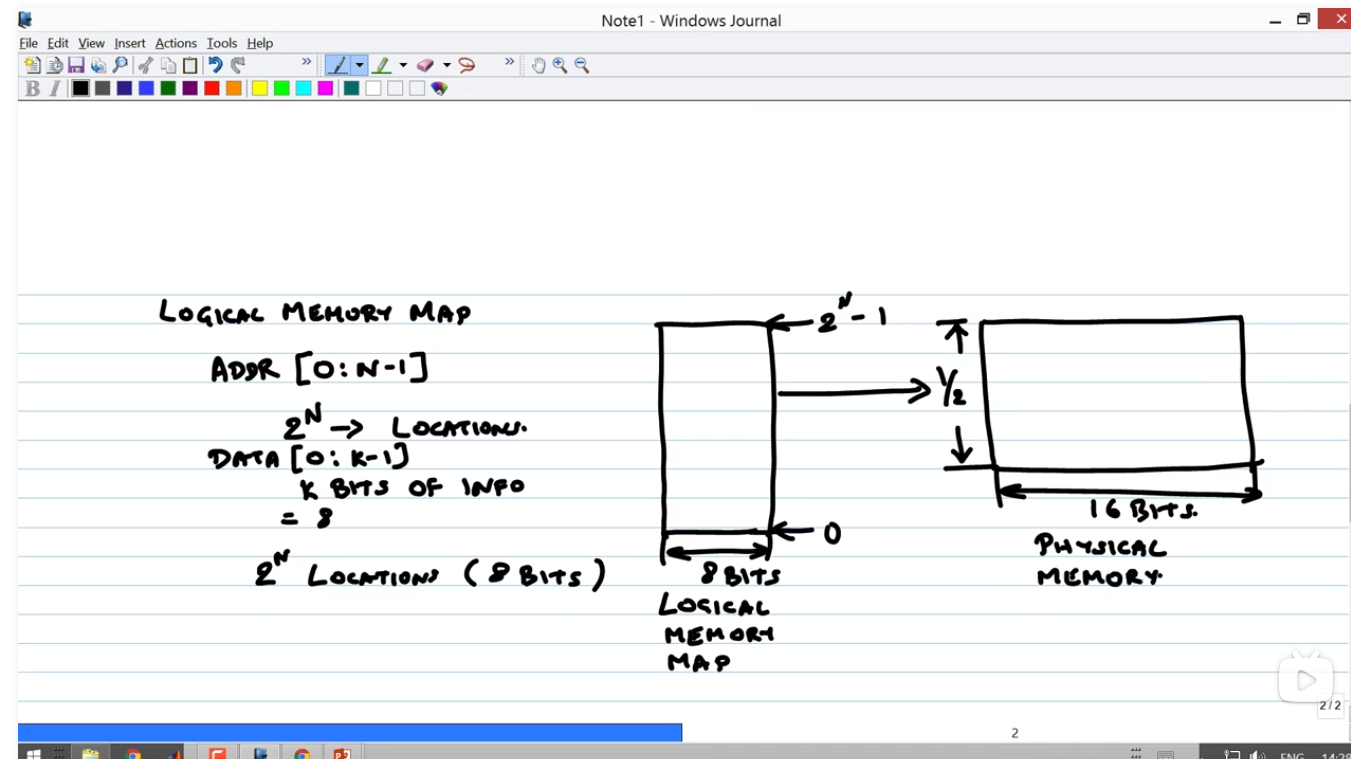 Note1 - Windows Journal
File Edit View Insert Actions Tools Help
B I
LOGICAL MEMORY MAP
ADDR [0:N-1]
2^N → LOCATIONS.
DATA [0:K-1]
K BITS OF INFO
= 8
2^N LOCATIONS (8 BITS)
2^N - 1
0
8 BITS
LOGICAL
MEMORY
MAP
1/2
16 BITS.
PHYSICAL
MEMORY.
2/2
2
ENG 14:29